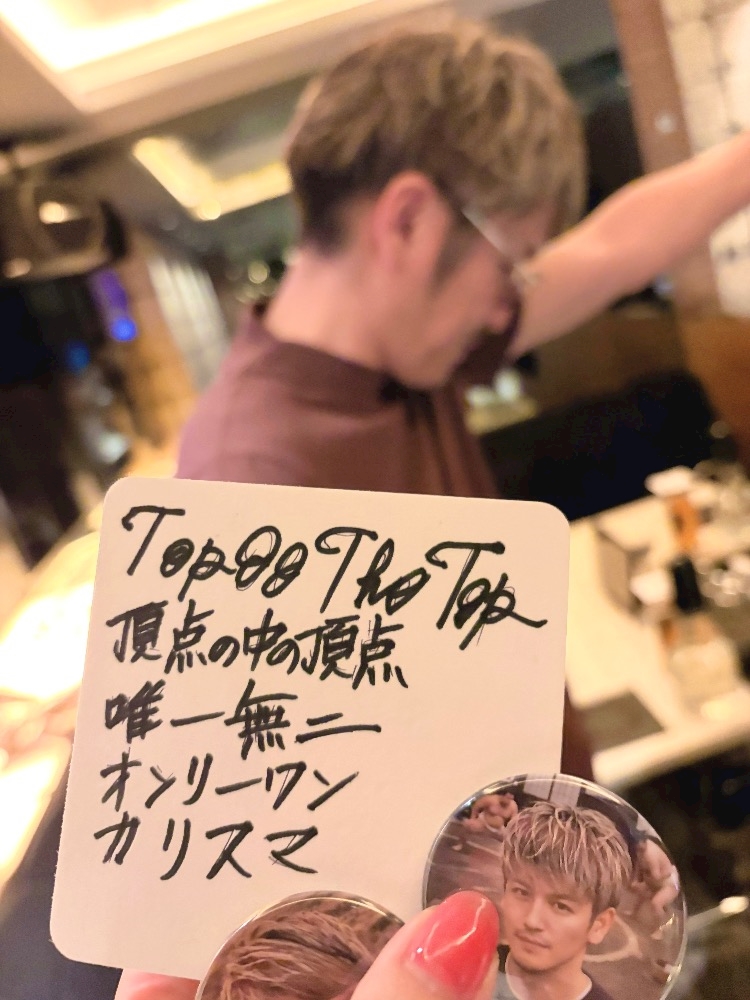 Top Of The Top
頂点の中の頂点
唯一無二
オンリーワン
カリスマ